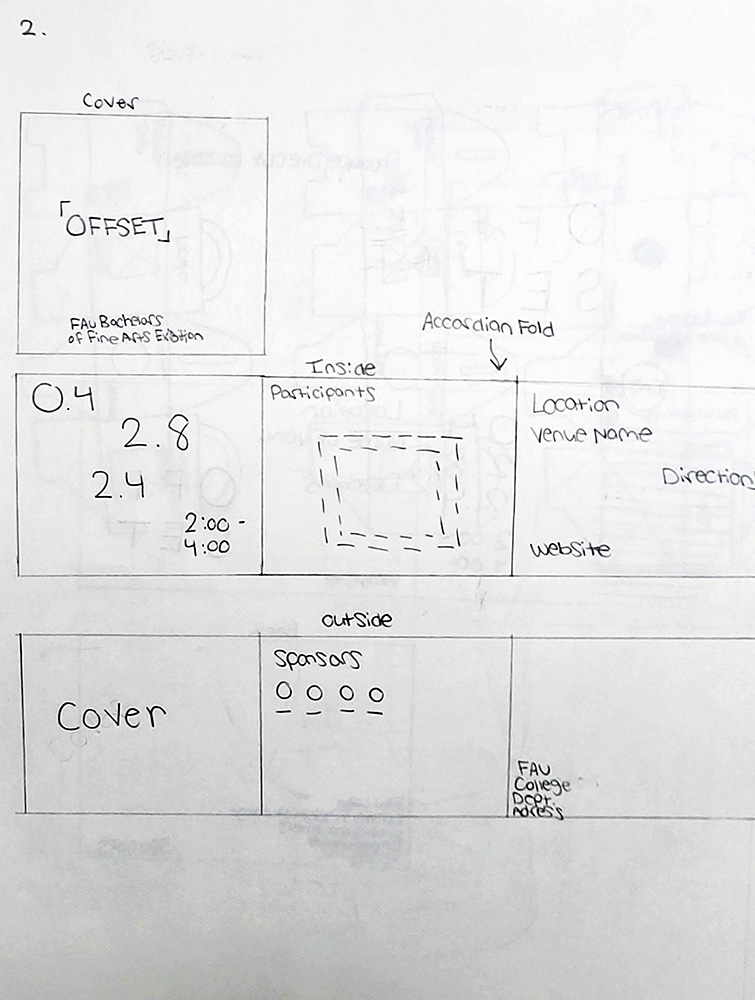 2.
Cover
「OFFSET」
FAU Bachelors
of Fine Arts Exibtion
Accordian Fold
Inside
0.4
2.8
2.4
2:00 -
4:00
Participants
Location
Venue Name
Direction
Website
outside
Cover
Sponsors
FAU
College
Dept.
Adress